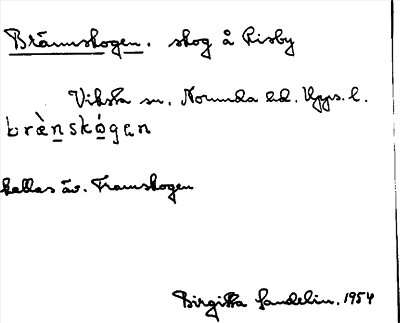 Brännskogen. skog å Risby
Viksta sn. Norunda hd. Upps. l.
brὰnskógen
kallas äv. Framskogen
Birgitta Sandelin. 1954